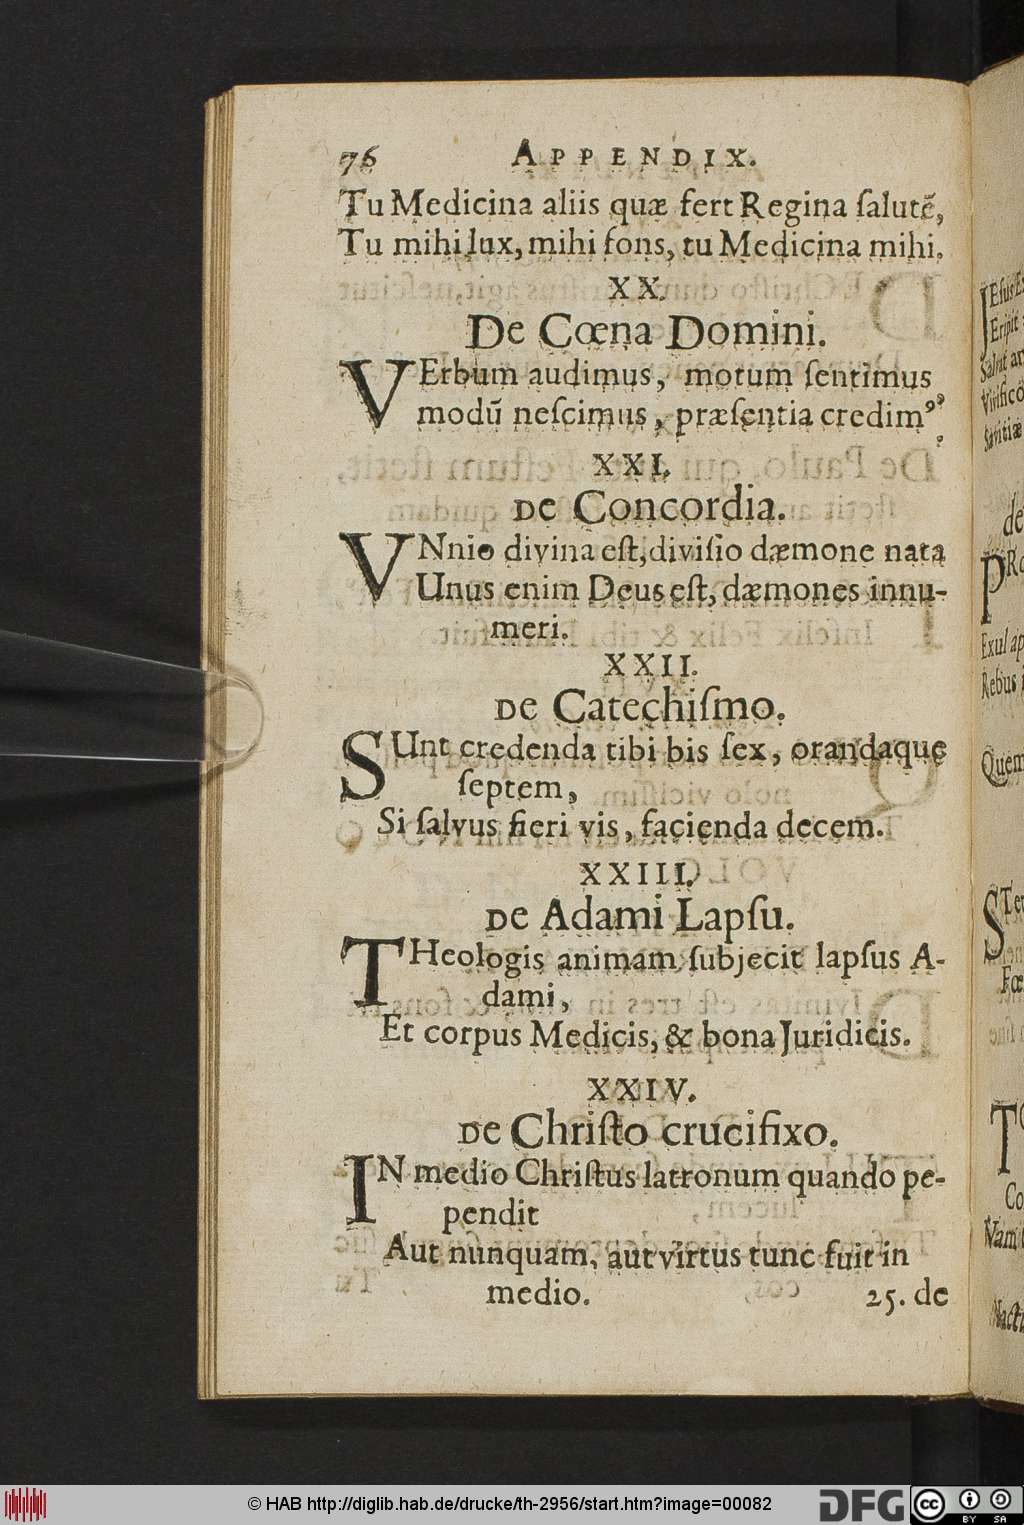 76 APPENDIX.
Tu Medicina aliis quæ fert Regina ſalutẽ,
Tu mihi lux, mihi fons, tu Medicina mihi.
XX.
De Cœna Domini.
VErbum audimus, motum ſentimus
modũ neſcimus, præſentia credimꝰ?
XXI.
De Concordia.
VNnio divina eſt, diviſio dæmone nata
Unus enim Deus eſt, dæmones innu-
meri.
XXII.
De Catechiſmo.
SUnt credenda tibi bis ſex, orandaque
ſeptem,
Si ſalvus fieri vis, facienda decem.
XXIII.
De Adami Lapſu.
THeologis animam ſubjecit lapſus A-
dami,
Et corpus Medicis, & bona Juridicis.
XXIV.
De Chriſto crucifixo.
IN medio Chriſtus latronum quando pe-
pendit
Aut nunquam, aut virtus tunc fuit in
medio. 25. de
© HAB http://diglib.hab.de/drucke/th-2956/start.htm?image=00082
DFG
CC BY SA